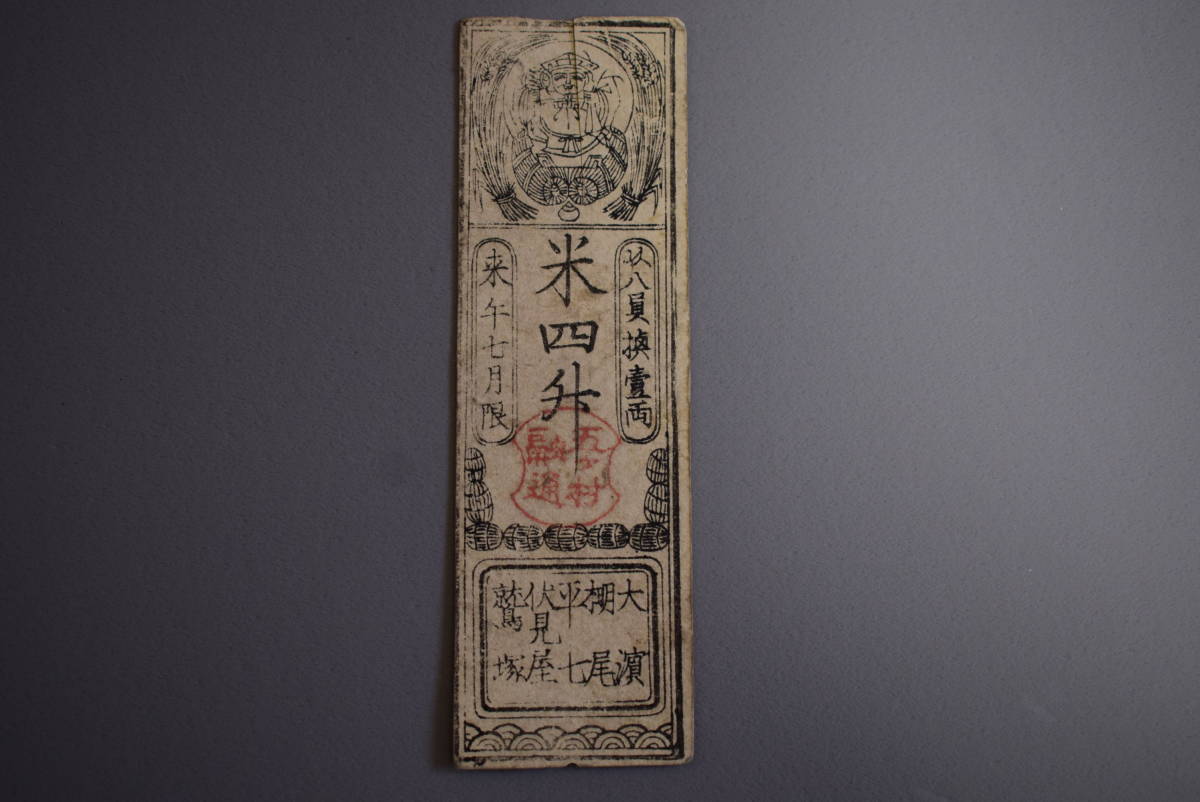 以八員換壹両
米四升
来午七月限
五ケ村
融通
大濱
棚尾
平七
伏見屋
鷲塚